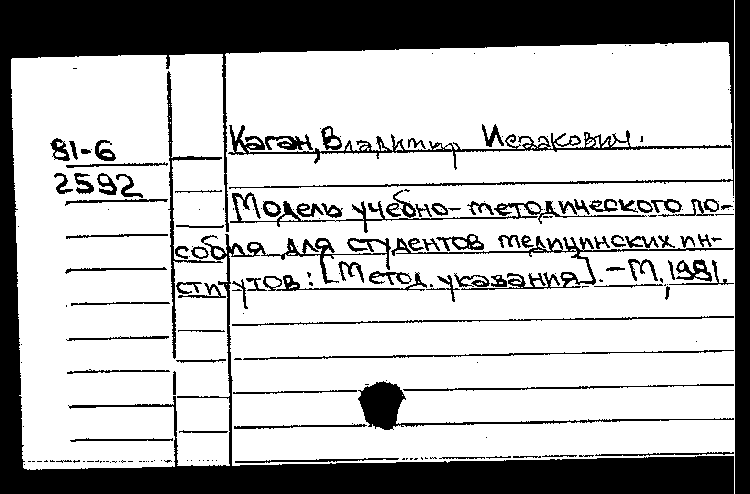 81-6
2592
Каган, Владимир Исаакович.
Модель учебно-методического по-
собия для студентов медицинских ин-
ститутов: [Метод. указания]. - М., 1981.